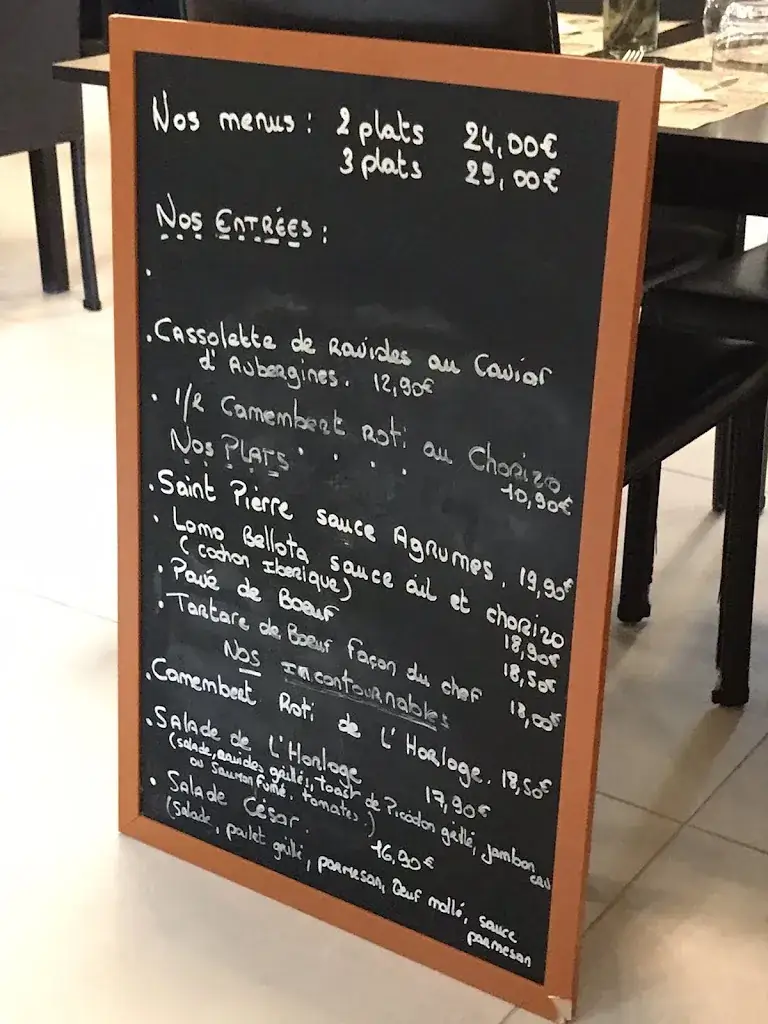 Nos menus : 2 plats 24,00€
3 plats 29,00€
Nos Entrées :
.
. Cassolette de Ravioles au Caviar
d'Aubergines. 12,90€
. 1/2 Camembert Roti au Chorizo
10,90€
Nos Plats
. Saint Pierre sauce Agrumes. 19,90€
. Lomo Bellota sauce ail et chorizo
(cochon Iberique) 18,90€
. Pavé de Boeuf 18,50€
. Tartare de Boeuf façon du chef 18,00€
Nos Incontournables
. Camembert Roti de L'Horloge. 18,50€
. Salade de L'Horloge 17,90€
(salade, ravioles grillé, toast de Picodon grillé, jambon cru
ou saumon fumé, tomates)
. Salade César. 16,90€
(Salade, poulet grillé, parmesan, Oeuf mollé, sauce
parmesan